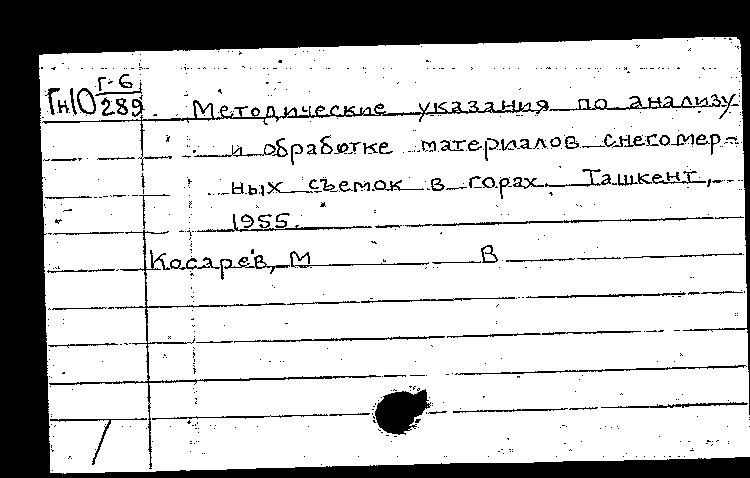 Гн10 Г-6/289. Методические указания по анализу
и обработке материалов снегомер-
ных съемок в горах. Ташкент,
1955.
Косарев, М В